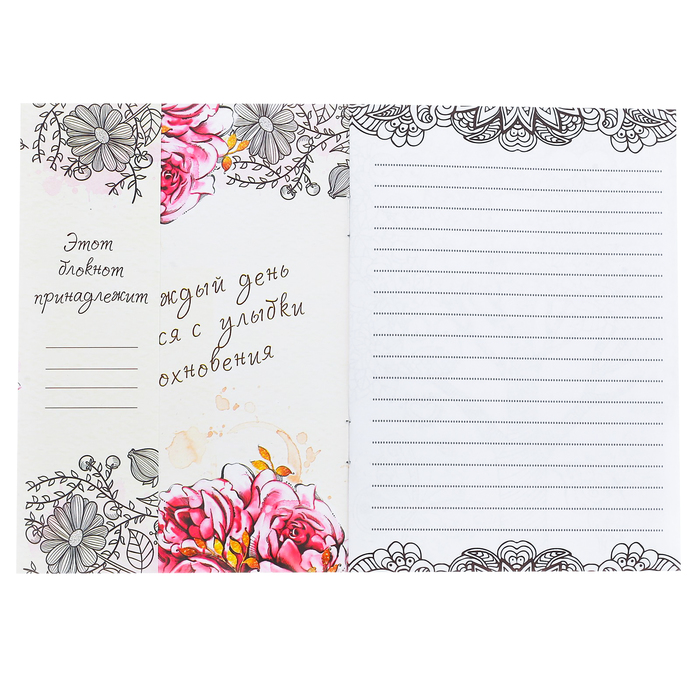 Этот
блокнот
принадлежит
ждый день
ся с улыбки
охновения